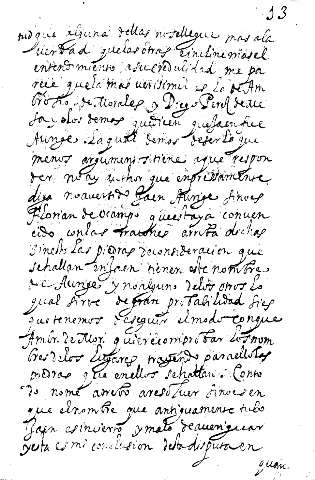 33
nidque alguna dellas no se llegue mas a la
verdad que las otras e yncline mas el
entendimiento a su credulidad me pa
reçe que la mas verisimil es la de Am
brosio de Morales y Diego Perez de me
sa y los demas que dicen que Jaen fue
Aunge. La qual demas de ser la que
menos argumentos tiene a que respon
der no ay author que expressamente
diga no aver sido Jaen Aunge sino es
Florian de ocampo que esta ya conven
cido con las arriba dichas
Las piedras de consideracion que
se hallan en Jaen tienen este nombre
de Aunge y no alguno de los otros lo
qual sirve de gran probabilidad si es
que tenemos de seguir el modo con que
Ambr. de Mor. quiere comprobar los nom
bres de los lugares trayendo para ello las
piedras que en ellos se hallan. Con to
do no me atrebo a resolver sino es en
que el nombre que antiguamente tubo
Jaen es incierto y malo de averiguar
y esta es mi conclusion desta disputa en
quan